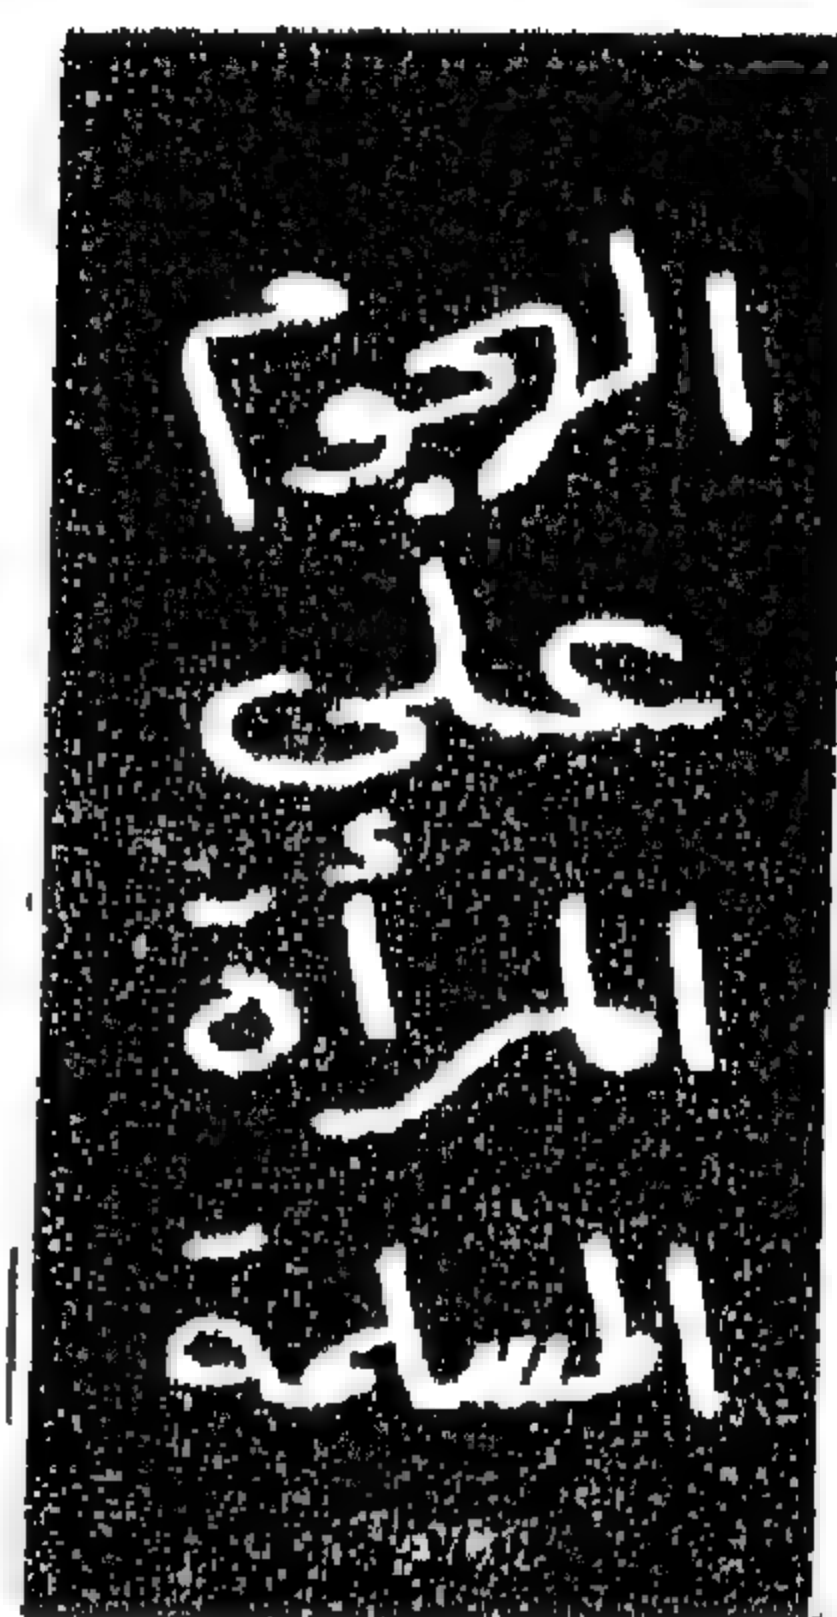 الهجوم
على
المرأة
المسلمة